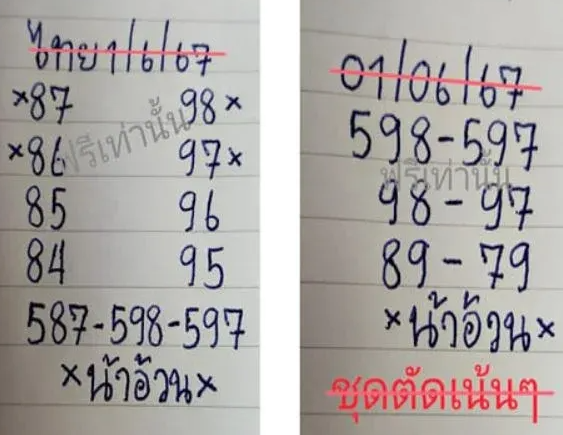 ไทย 1/6/67
×87 98×
×86 97×
85 96
84 95
587-598-597
×น้าอ้วน×
ฟรีเท่านั้น
01/06/67
598-597
98-97
89-79
×น้าอ้วน×
ชุดตัดเน้นๆ
ฟรีเท่านั้น